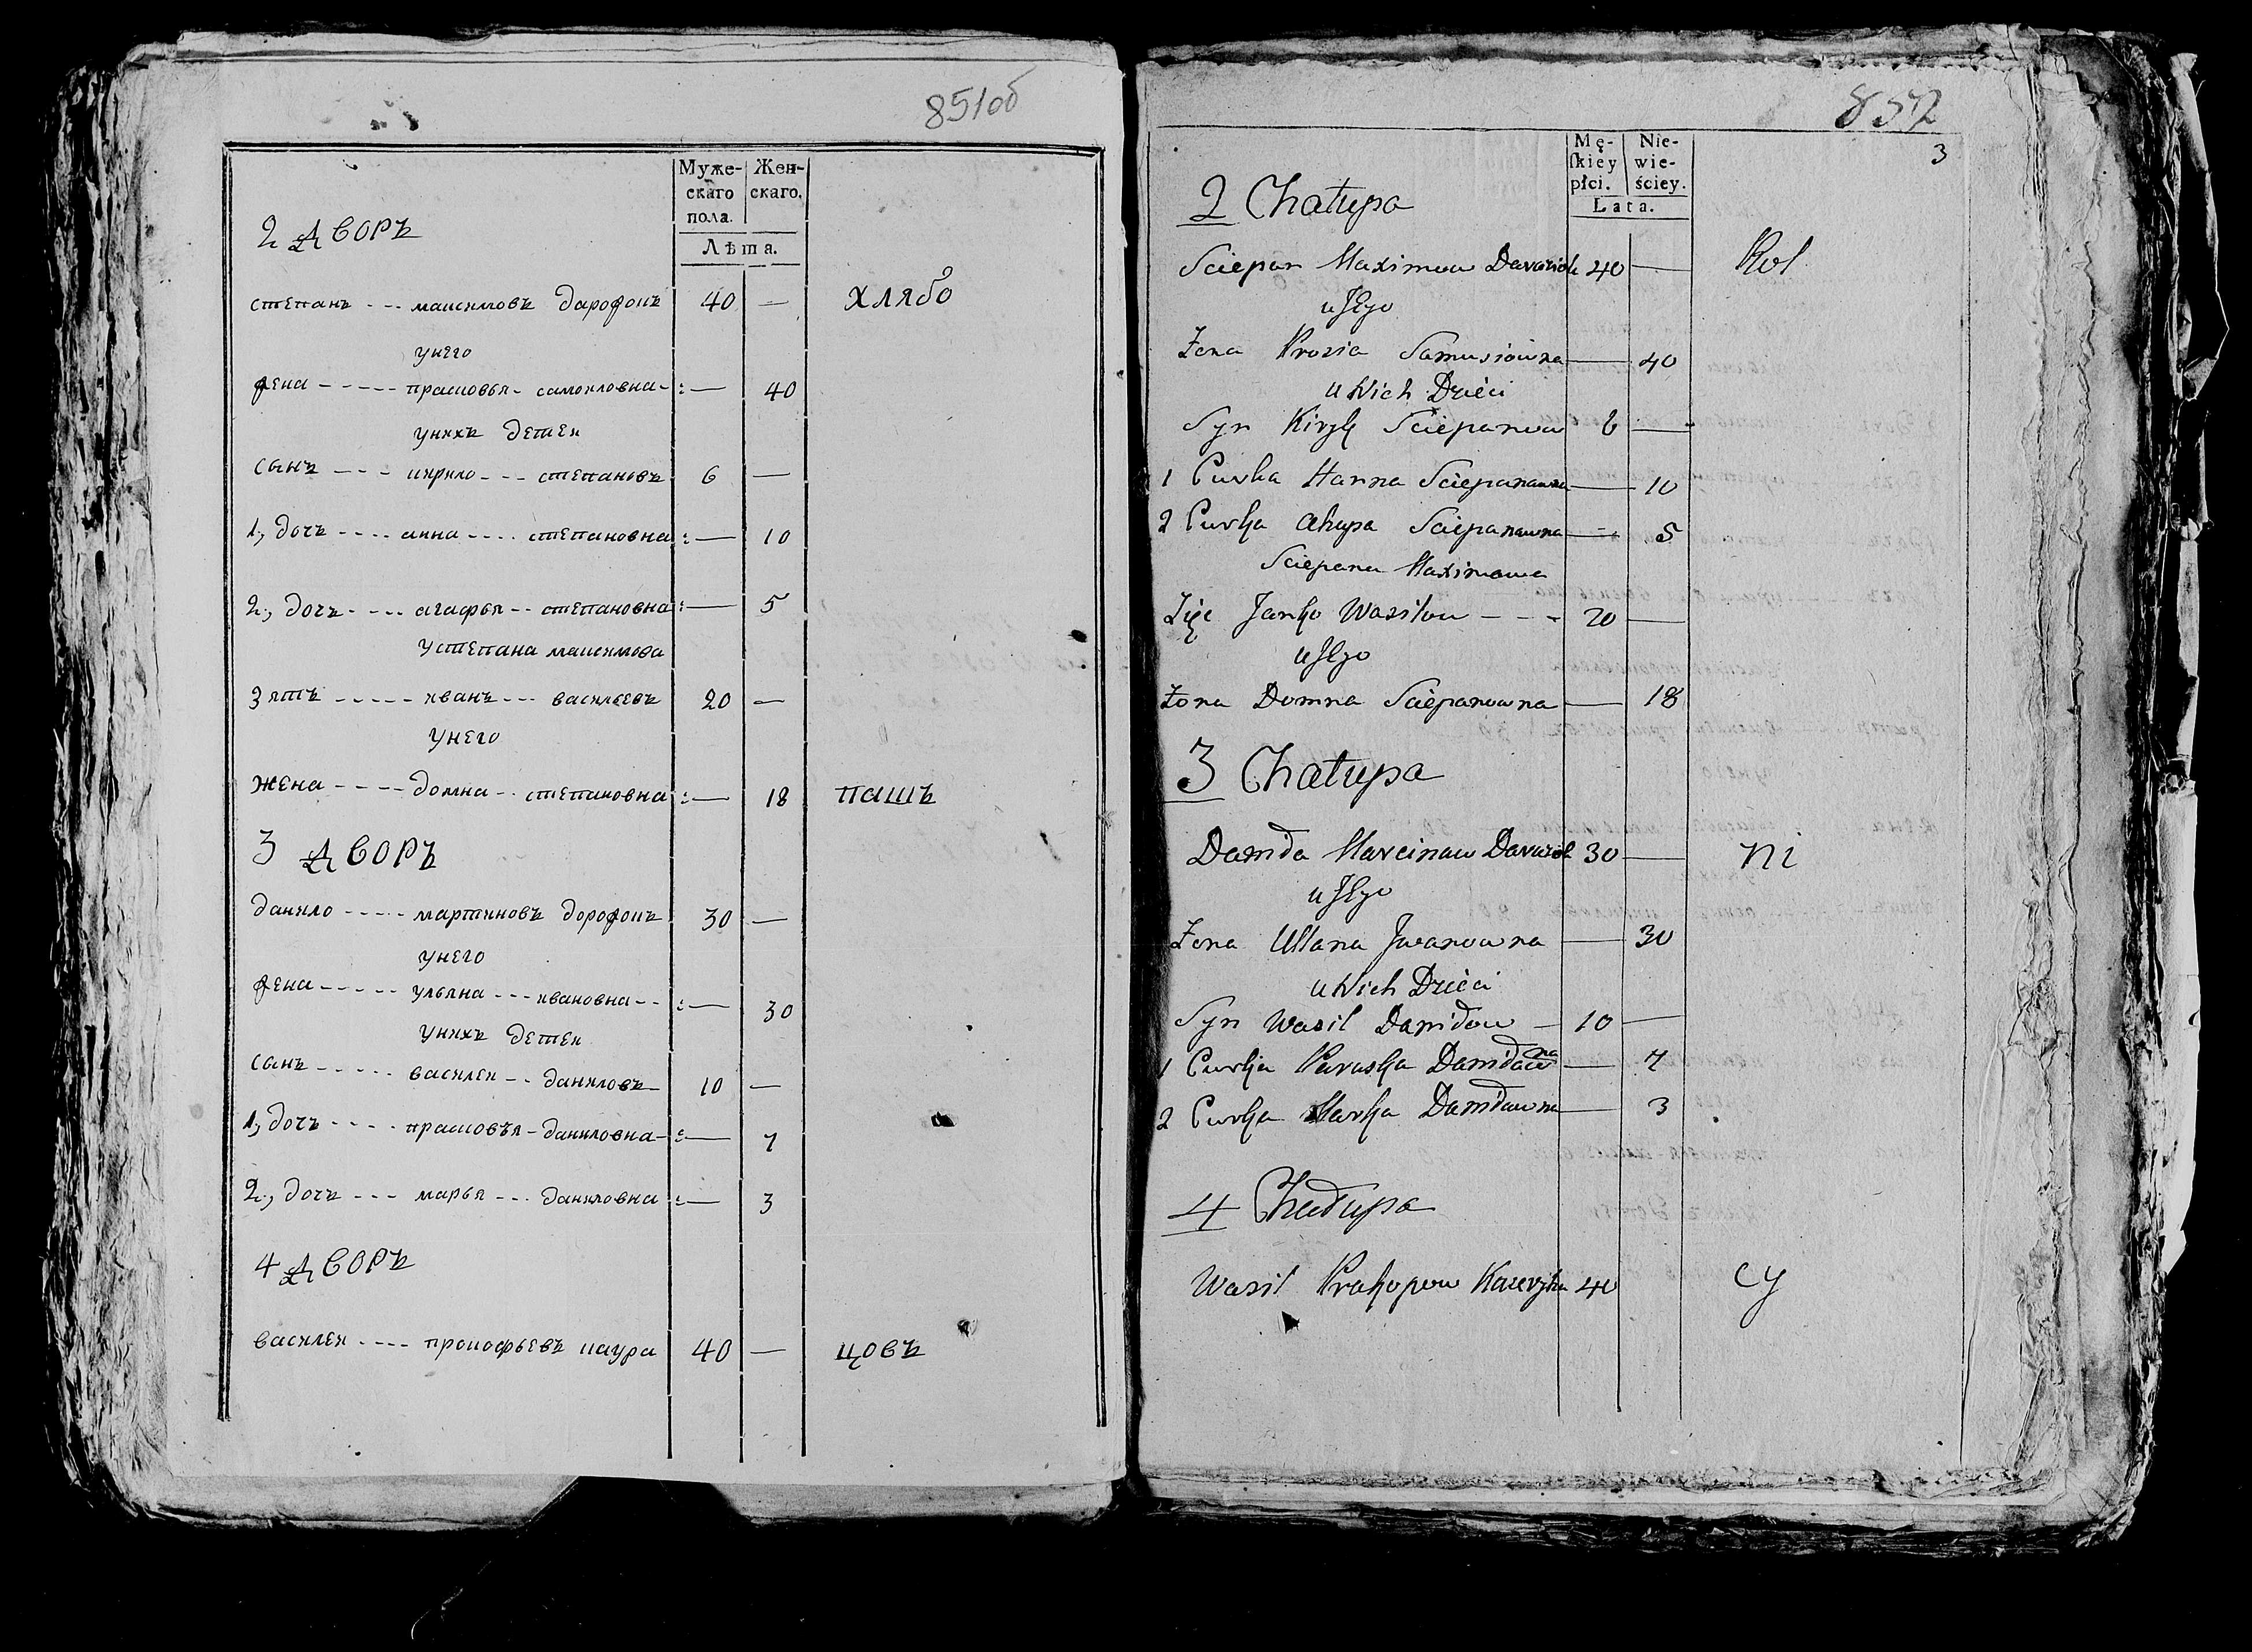 851об
Муже-
скаго
пола.
Жен-
скаго.
Лѣта.
2 дворъ
степанъ --- максимовъ дарофокъ 40 — хлябо
унего
жена ----- прасковья - самоиловна - :— 40
унихъ детеи
сынъ ---- кирило --- степановъ 6 —
1, дочь ---- анна ---- степановна :— 10
2, дочь ---- агафья -- степановна :— 5
устепана максимова
зять ----- иванъ --- васильевъ 20 —
унего
жена ---- домна -- степановна :— 18 пашъ
3 дворъ
данило ----- мартиновъ дорофокъ 30 —
унего
жена ----- ульяна --- ивановна -- :— 30
унихъ детеи
сынъ ----- василеи -- даниловъ - 10 —
1, дочь ---- прасковъя - даниловна - :— 7
2, дочь --- марья --- даниловна :— 3
4 дворъ
василеи ---- прокофьевъ каура 40 — цовъ
852
3
Mę-
ſkiey
płci.
Nie-
wie-
ściey.
Lata.
2 Chałupa
Sciepan Maximow 40 — Rol
u JEgo
Żona Prosia Samusiowna — 40
u Nich Dzieci
Syn Kiryła Sciepanow 6 —
1 Curka Hanna Sciepanawna — 10
2 Curka Ahapa Sciepanawna — 5
Sciepana Maximowa
Zięć Janko Wasilow --- 20 —
u JEgo
Żona Domna Sciepanowna — 18
3 Chałupa
Daniła Marcinaw 30 — ni
u JEgo
Żona Ullana Jwanowna — 30
u Nich Dzieci
Syn Wasil Daniłow — 10 —
1 Curka Paraska Daniławna — 7
2 Curka Marka Daniławna — 3
4 Chałupa
Wasil Prakopow 40 cy